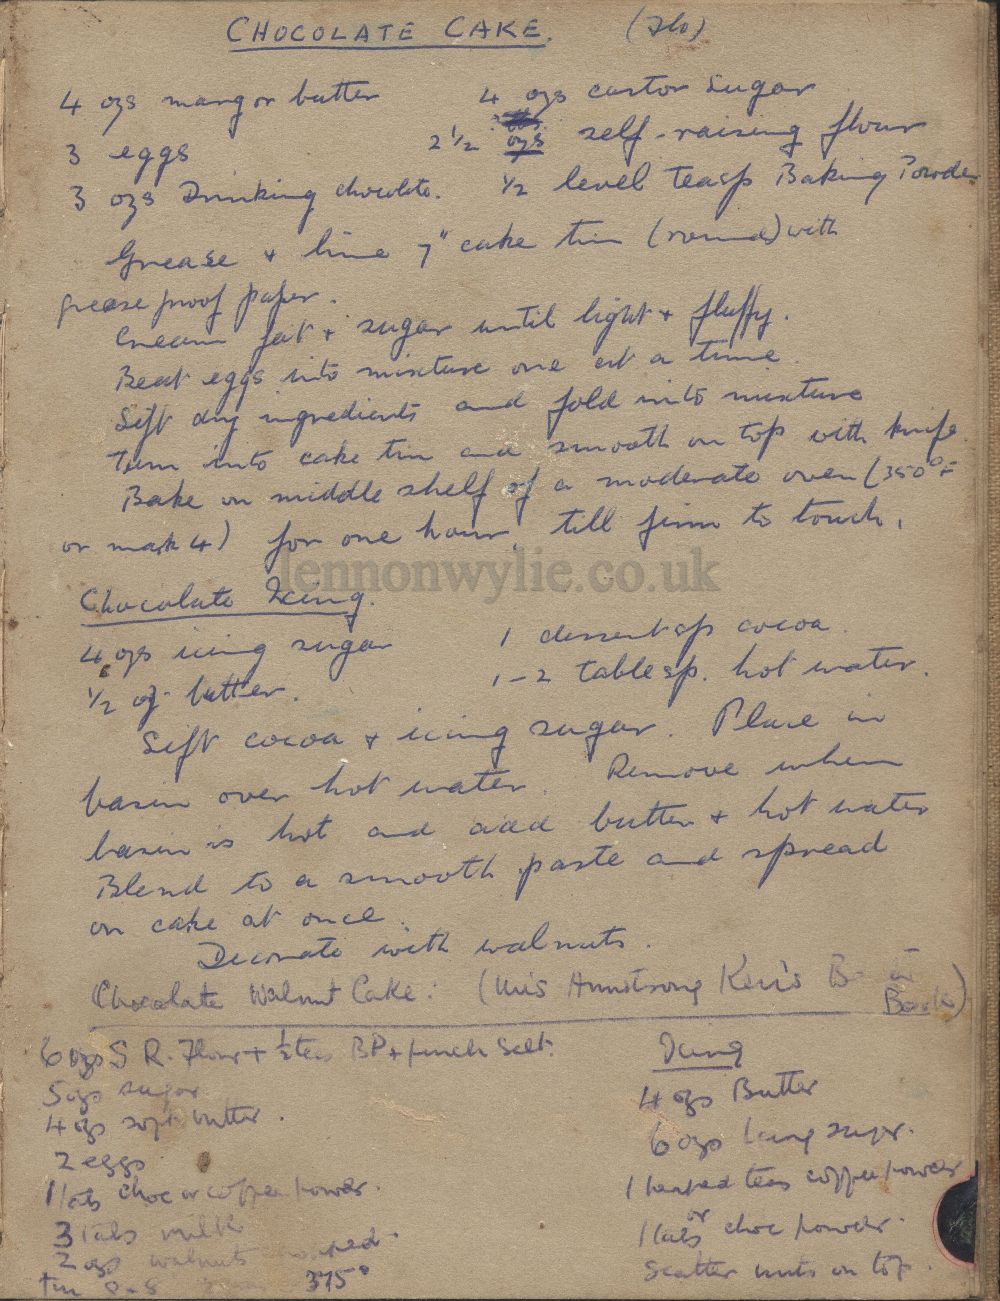 CHOCOLATE CAKE. (Flo)
4 ozs marg or butter 4 ozs castor sugar
3 eggs 2 1/2 ozs self-raising flour
3 ozs Drinking chocolate. 1/2 level teasp Baking Powder
Grease + line 7" cake tin (round) with
grease proof paper.
Cream fat + sugar until light + fluffy.
Beat eggs into mixture one at a time.
Sift dry ingredients and fold into mixture
Turn into cake tin and smooth on top with knife.
Bake on middle shelf of a moderate oven (350°F
or mark 4) for one hour, till firm to touch.
lennonwylie.co.uk
Chocolate Icing.
4 ozs icing sugar 1 dessertsp cocoa.
1/2 oz butter. 1-2 tablesp. hot water.
Sift cocoa + icing sugar. Place in
basin over hot water. Remove when
basin is hot and add butter + hot water
Blend to a smooth paste and spread
on cake at once.
Decorate with walnuts.
Chocolate Walnut Cake: (Mis Armstrong Book)
6 ozs S R. Flour + 1/2 teas BP + pinch Salt. Icing
5 ozs sugar 4 ozs Butter
4 ozs soft butter. 6 ozs Icing sugar.
2 eggs
1 tabs choc or coffee powder. 1 heaped teas coffee powder
or
3 tabs milk 1 tabs choc powder.
2 ozs walnuts chopped. Scatter nuts on top.
Tin 8 375°